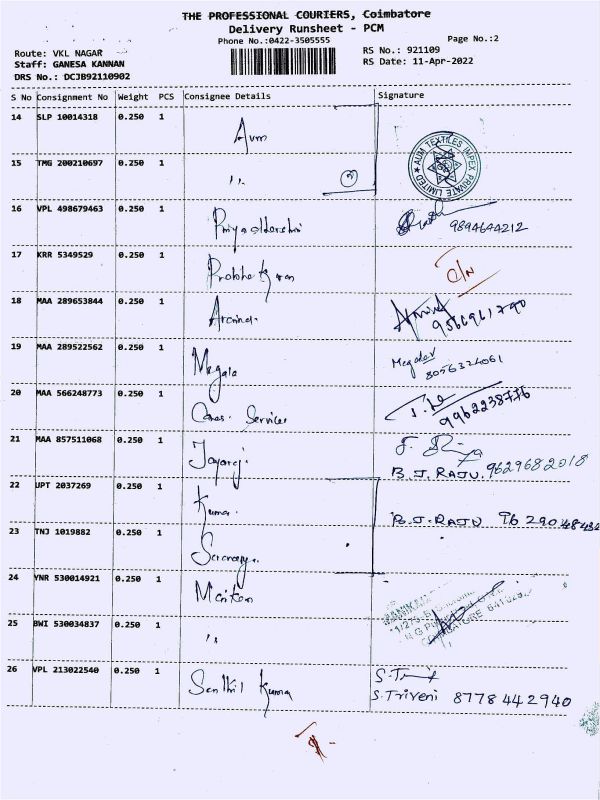 THE PROFESSIONAL COURIERS, Coimbatore
Delivery Runsheet - PCM
Phone No.:0422-3505555
Page No.:2
Route: VKL NAGAR
Staff: GANESA KANNAN
DRS No.: DCJB92110902
RS No.: 921109
RS Date: 11-Apr-2022
S No Consignment No Weight PCS Consignee Details Signature
14 SLP 10014318 0.250 1 Aum
AUM TEXTILES IMPEX PRIVATE LIMITED
15 TMG 200210697 0.250 1 "
16 VPL 498679463 0.250 1 Priyadharshini
9894644212
17 KRR 5349529 0.250 1 Prabhakaran
C/N
18 MAA 289653844 0.250 1 Arvind
19 MAA 289522562 0.250 1 Megala
8056324061
20 MAA 566248773 0.250 1 Services
9962238776
21 MAA 857511068 0.250 1 Jayaraj
B.J. RAJU. 9629682018
22 UPT 2037269 0.250 1 Kuma
B.J. RAJU
23 TNJ 1019882 0.250 1
24 YNR 530014921 0.250 1
25 BWI 530034837 0.250 1 "
COIMBATORE
26 VPL 213022540 0.250 1 Senthil Kuma
S. Triveni 8778442940